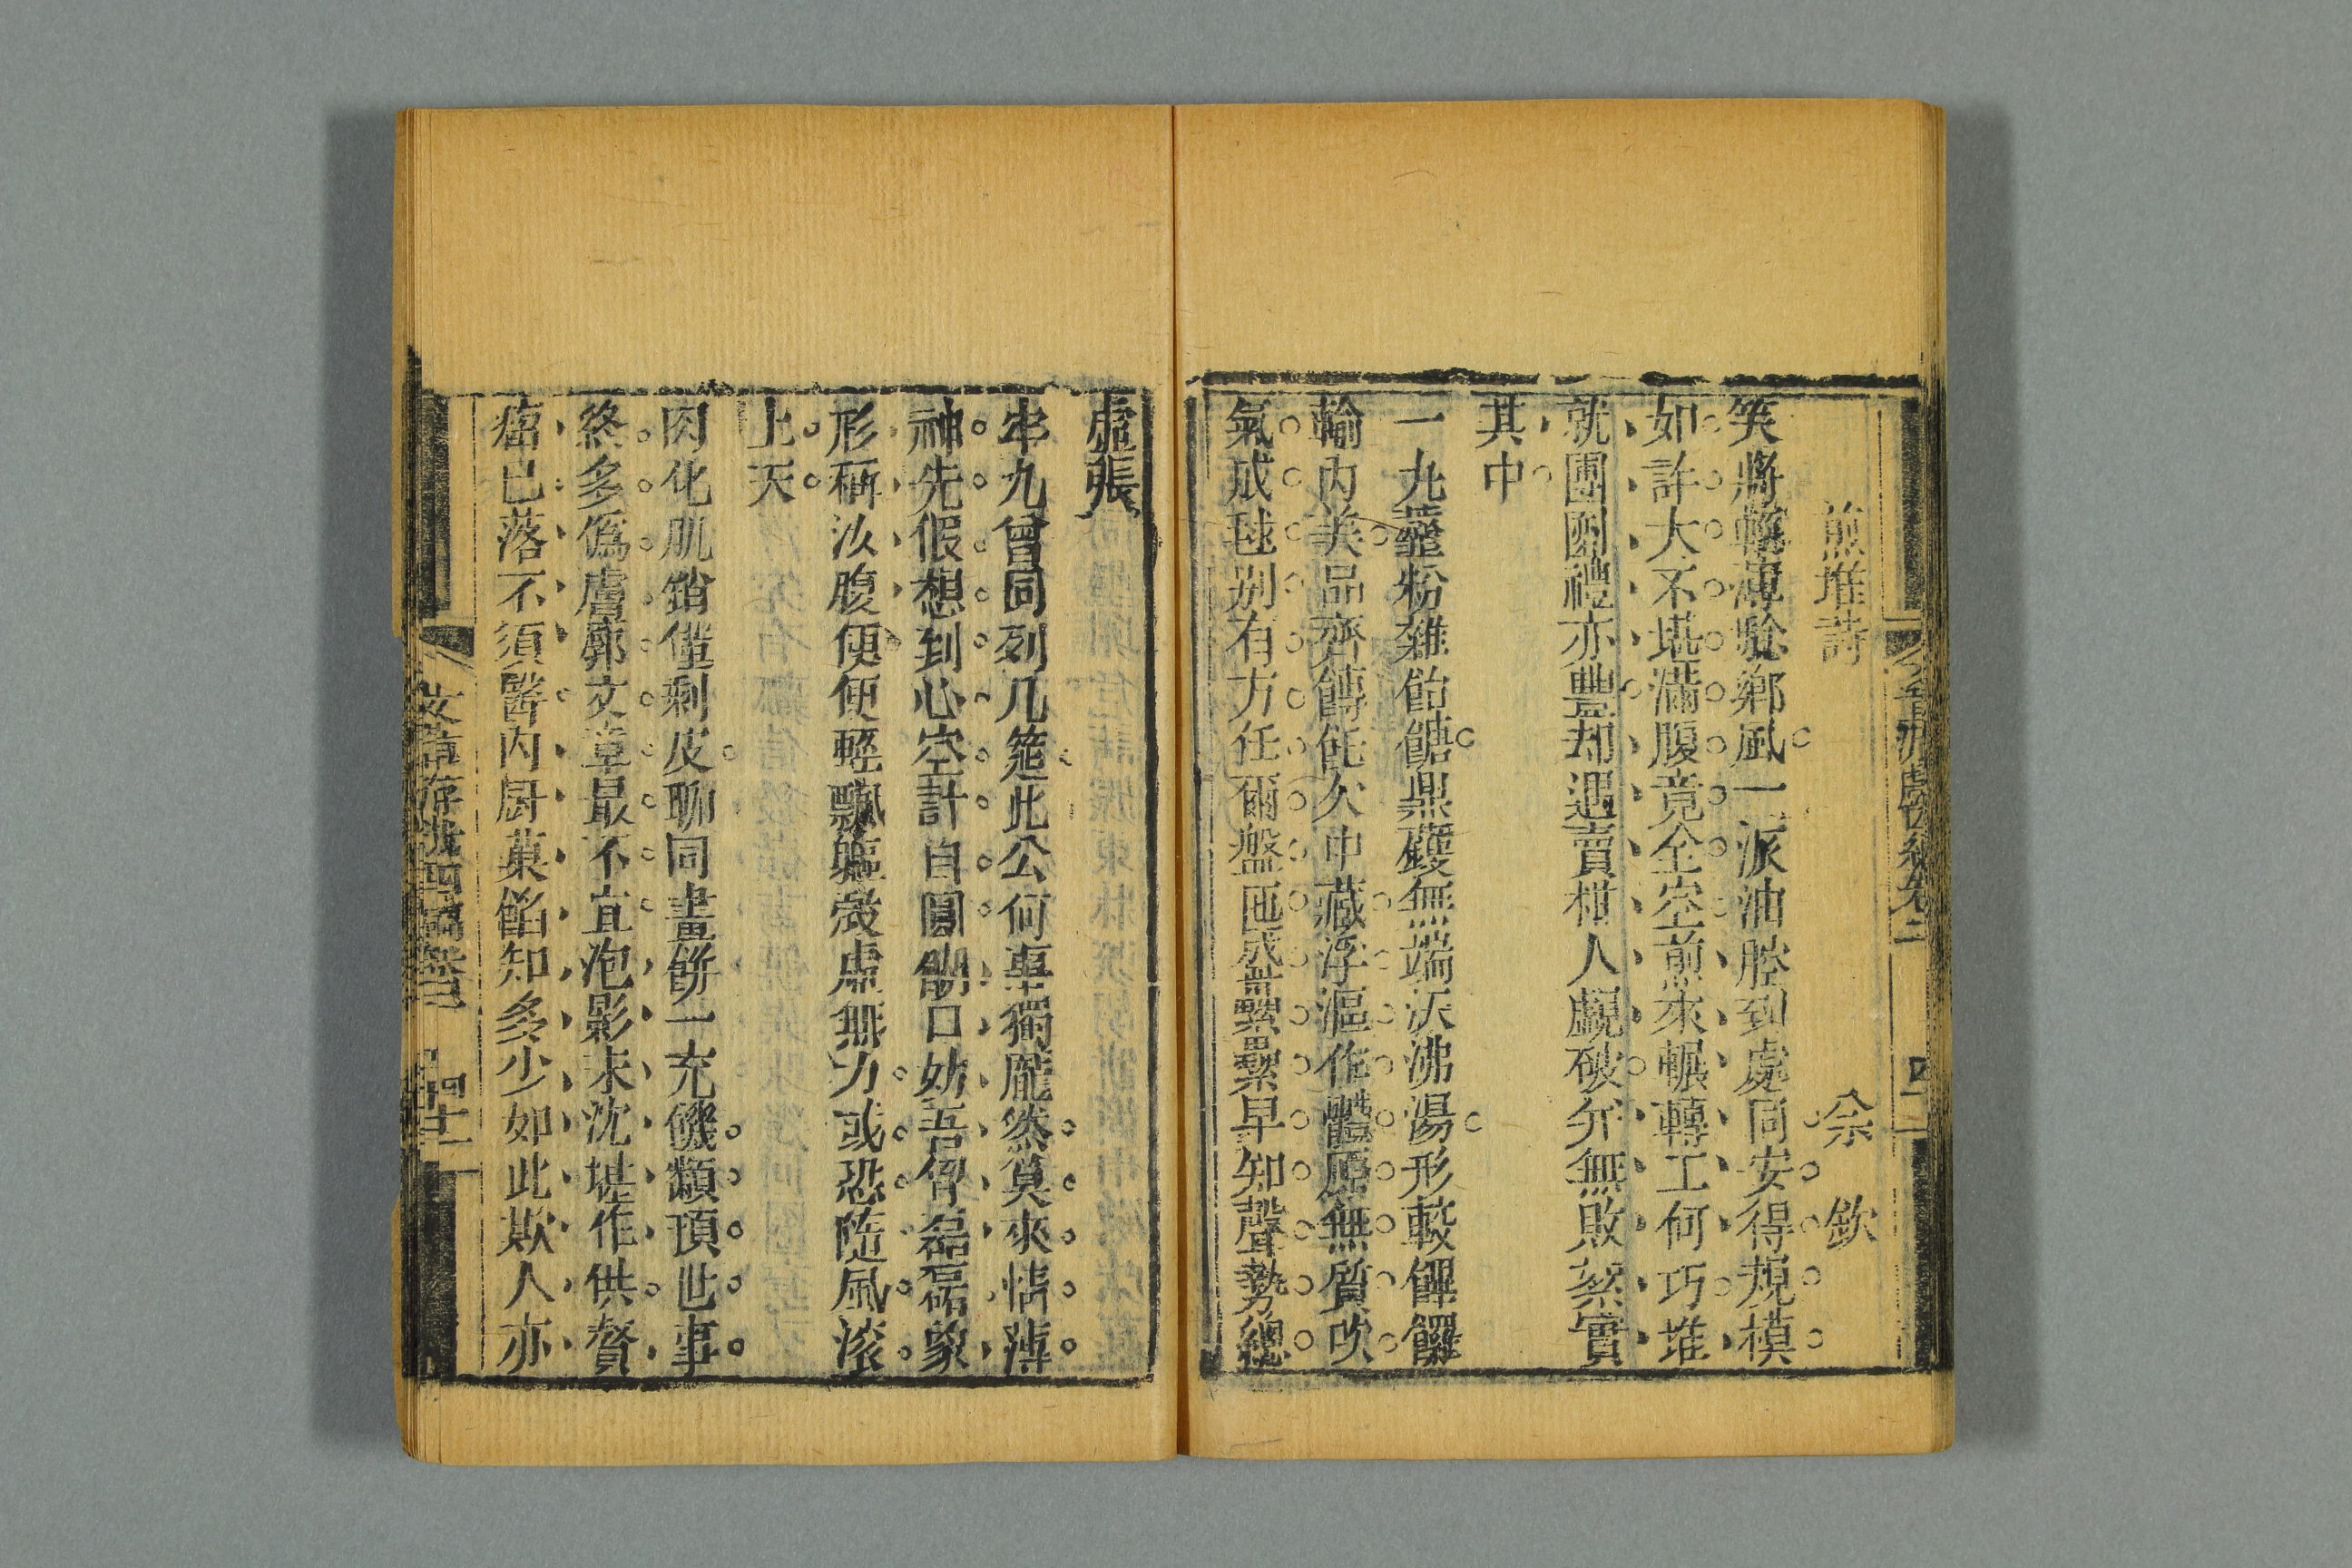 煎堆詩
佘 欽
笑將軽薄騐鄉風一派油腔到處同安得規模
如許大不堪滿腹竟全空煎來輾轉工何巧堆
就團圓禮亦豐却遇賣柑人覷破外無敗絮實
其中
一丸虀粉雜飴餹鼎鑊無端沃沸湯形較饆饠
輸內美品齊餺飥欠中藏浮漚作體原無質吹
氣成毬別有方任爾盤匜盛纍纍早知聲勢總
虛張
牢九曾同列几筵此公何事獨龐然莫來情薄
神先假想到心空計自圓餬口妨吾胷磊磊象
形稱汝腹便便輕飄軀殼虛無力或恐隨風滚
上天
肉化肌銷僅剩皮聊同畫餅一充饑纇頊世事
終多僞膚廓文章最不宜泡影未沈堪作供贅
瘤已落不須醫內厨菓餡知多少如此欺人亦
文章游戲四編卷三